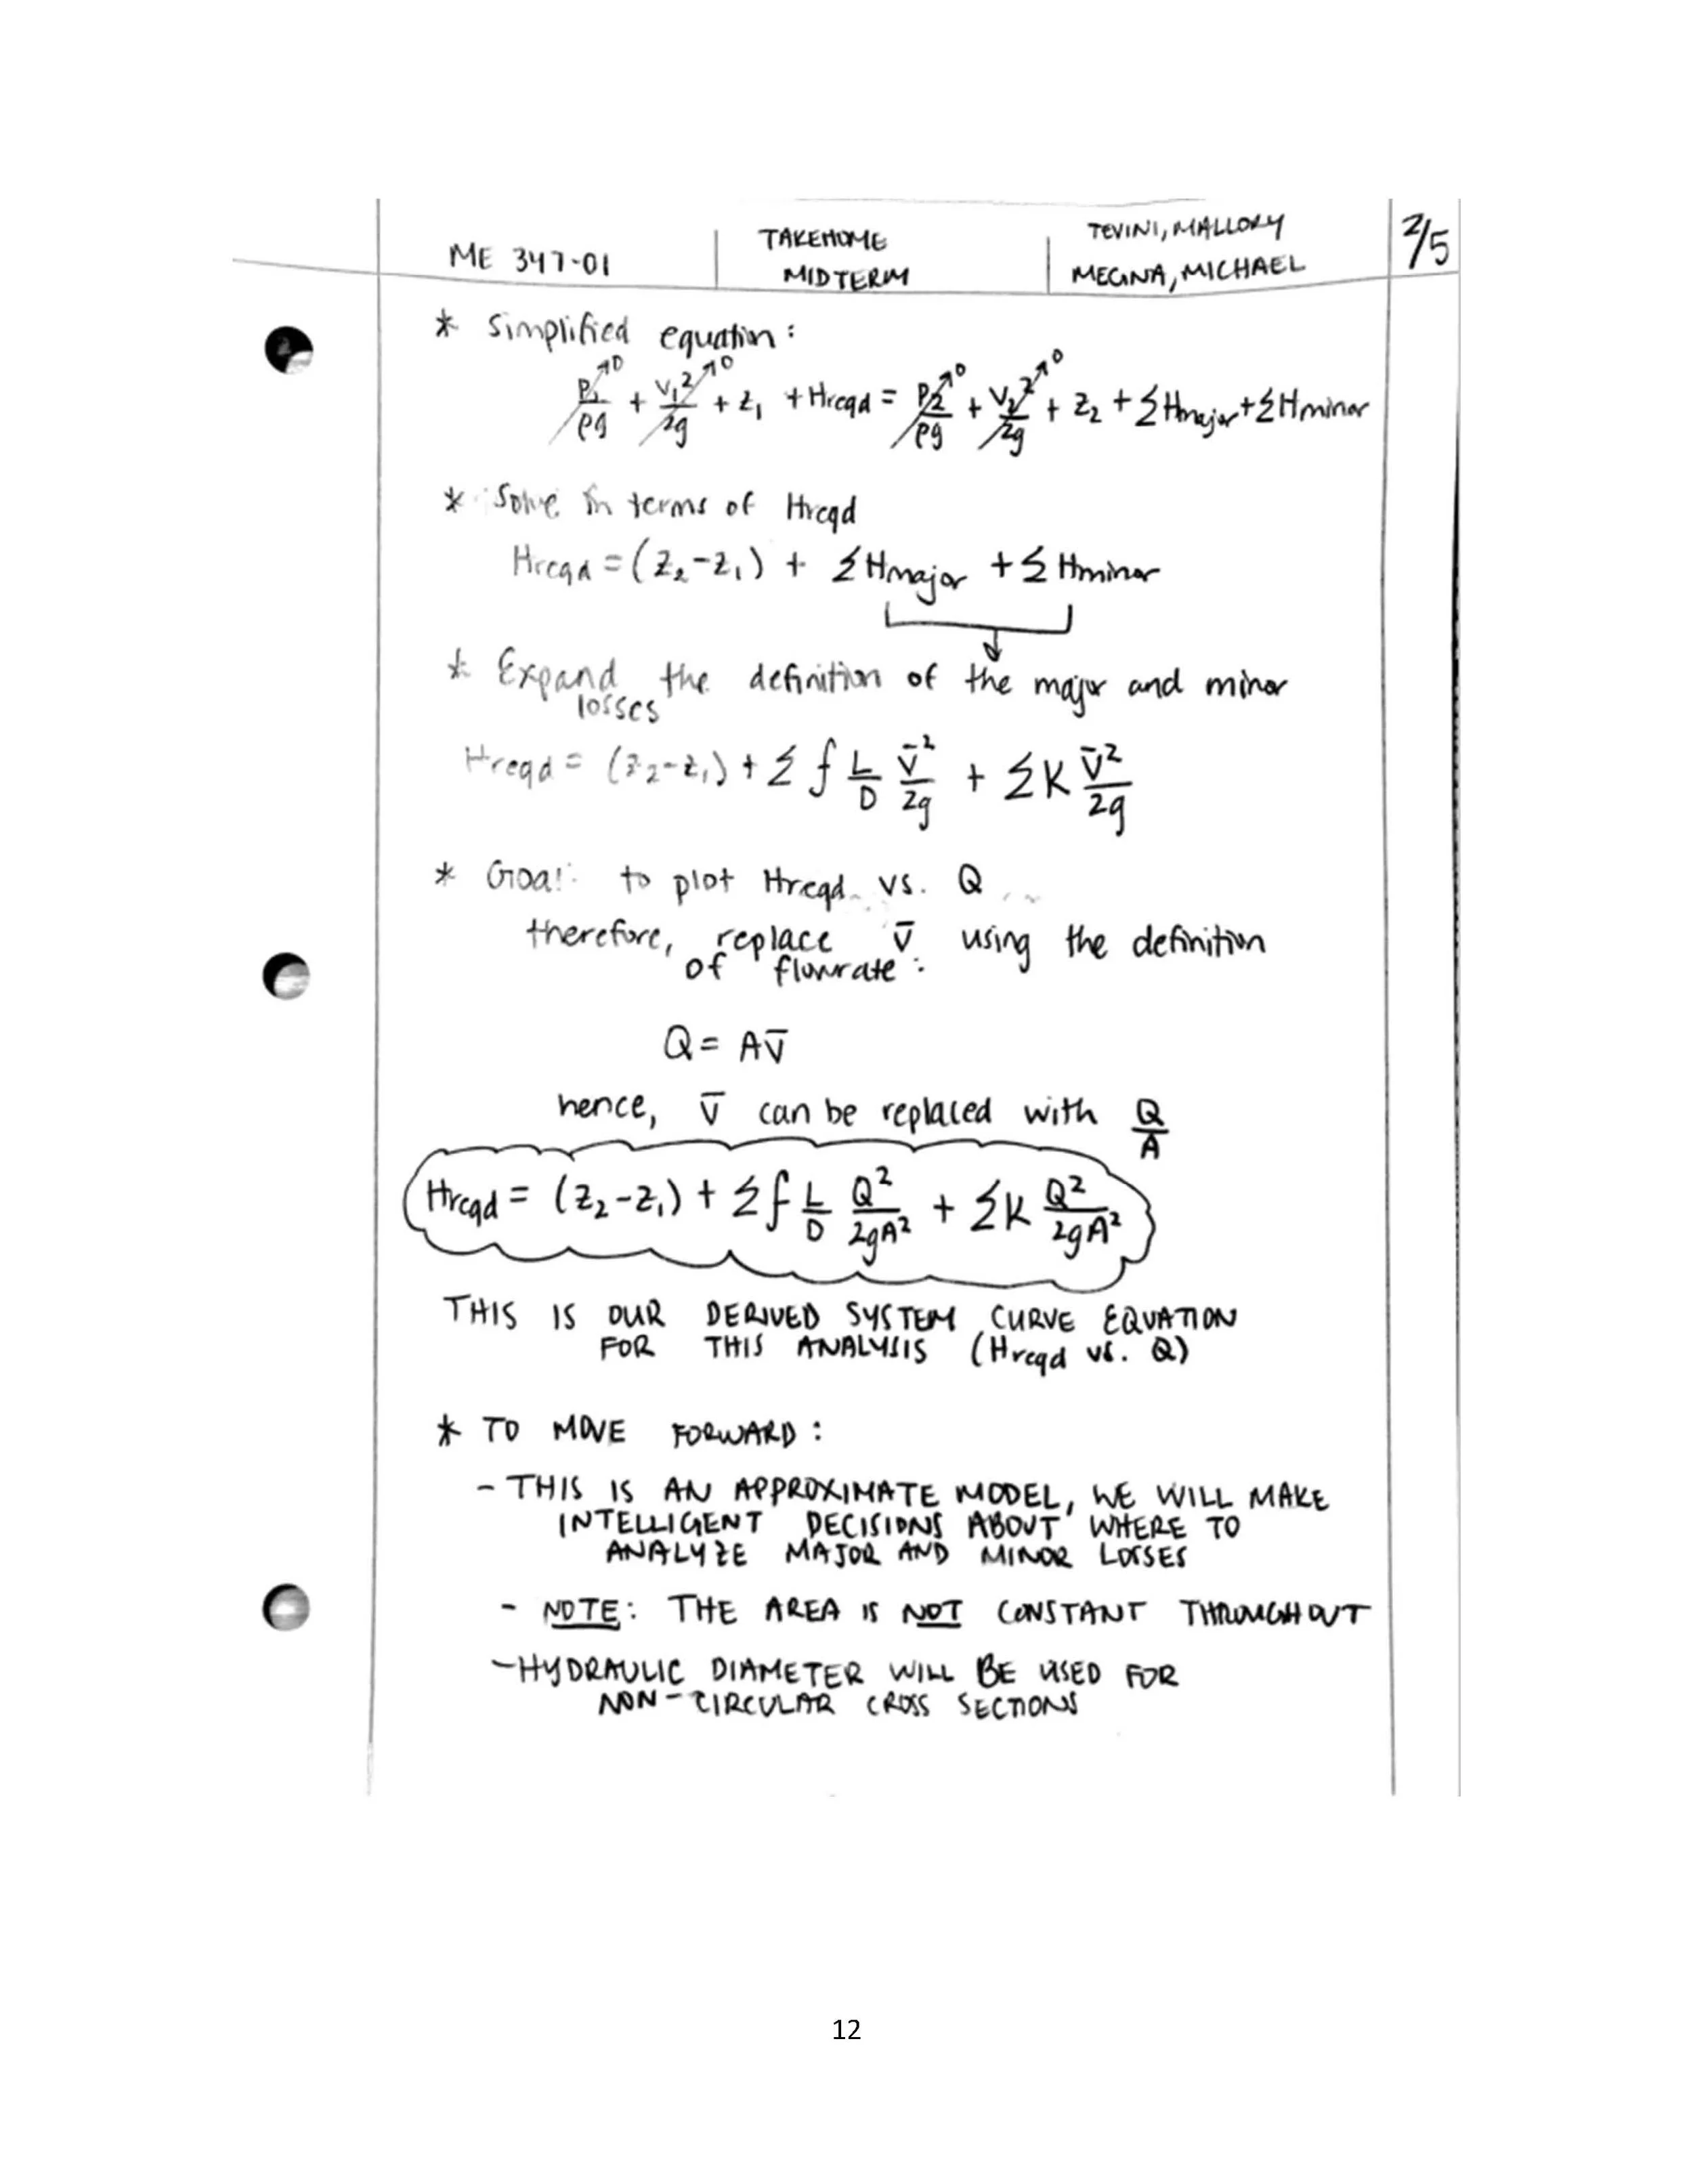 ME 347-01
TAKEHOME
MIDTERM
TEVINI, MALLORY
MEGINA, MICHAEL
2/5
* Simplified equation:
P₁/ρg ↗0 + V₁²/2g ↗0 + z₁ + Hreqd = P₂/ρg ↗0 + V₂²/2g ↗0 + z₂ + ΣHmajor + ΣHminor
* Solve in terms of Hreqd
Hreqd = (z₂-z₁) + ΣHmajor + ΣHminor
* Expand the definition of the major and minor
losses
Hreqd = (z₂-z₁) + Σ f L/D V̄²/2g + ΣK V̄²/2g
* Goal: to plot Hreqd vs. Q
therefore, replace V̄ using the definition
of flowrate:
Q = AV̄
hence, V̄ can be replaced with Q/A
Hreqd = (z₂-z₁) + Σ f L/D Q²/2gA² + ΣK Q²/2gA²
THIS IS OUR DERIVED SYSTEM CURVE EQUATION
FOR THIS ANALYSIS (Hreqd vs. Q)
* TO MOVE FORWARD:
- THIS IS AN APPROXIMATE MODEL, WE WILL MAKE
INTELLIGENT DECISIONS ABOUT WHERE TO
ANALYZE MAJOR AND MINOR LOSSES
- NOTE: THE AREA IS NOT CONSTANT THROUGHOUT
- HYDRAULIC DIAMETER WILL BE USED FOR
NON-CIRCULAR CROSS SECTIONS
12